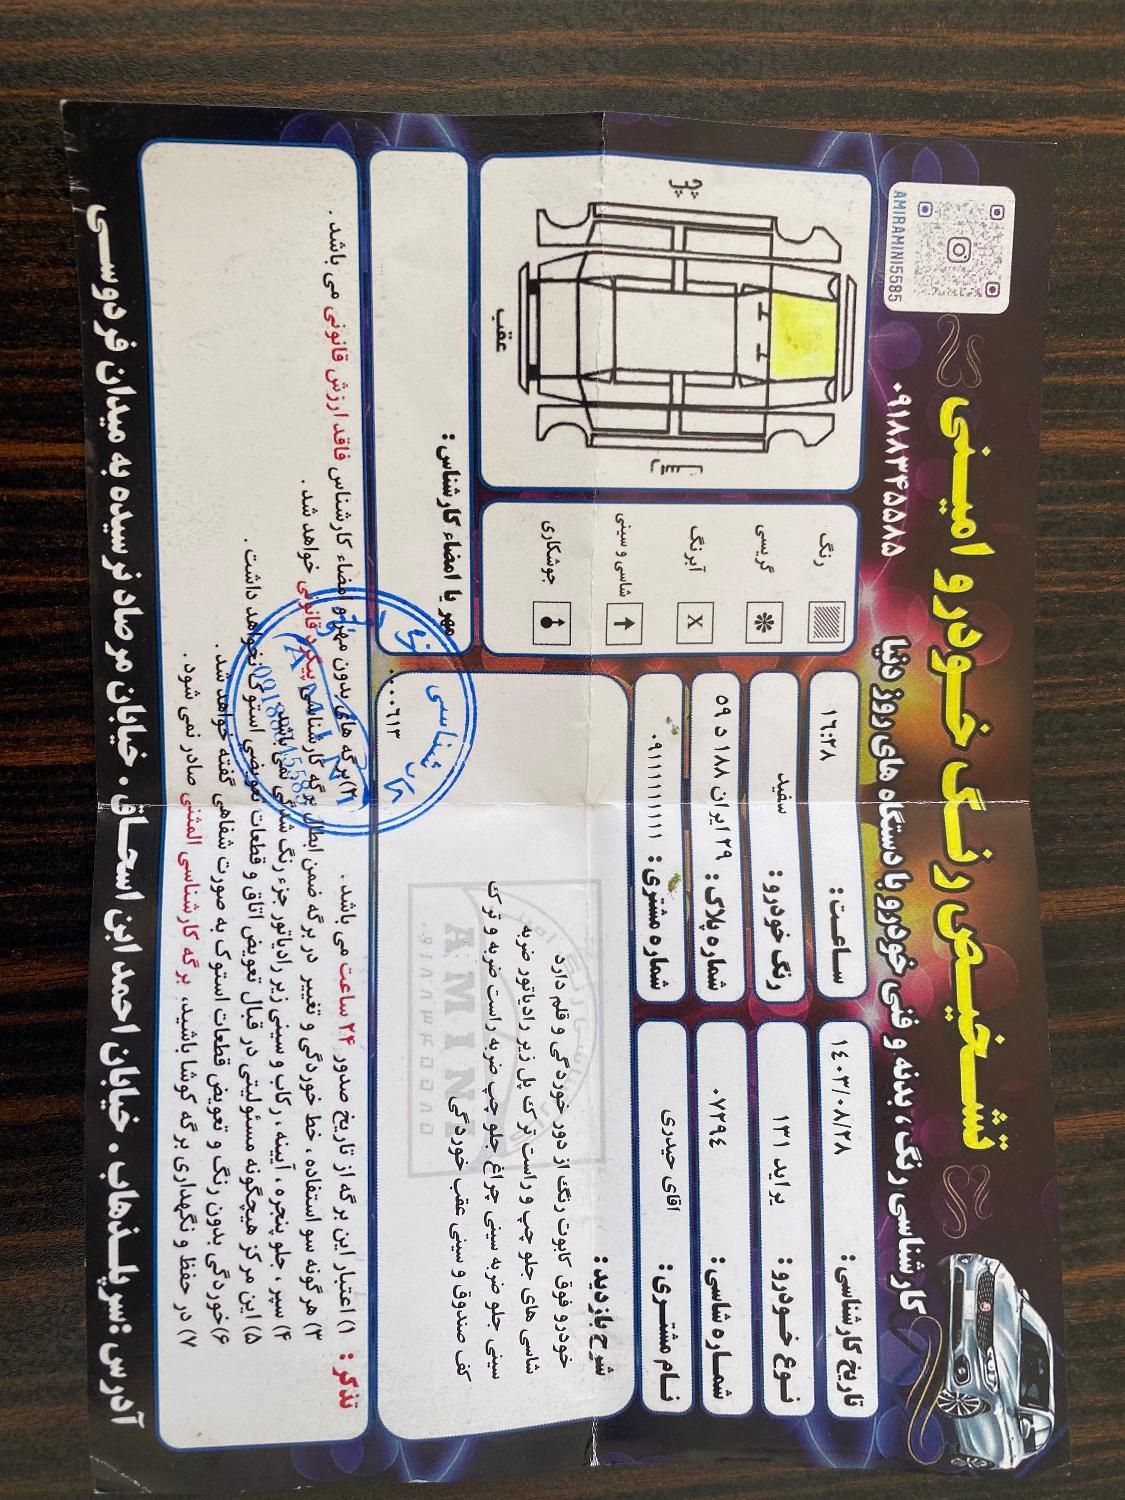 تشخیص رنگ خودرو امینی
۰۹۱۸۸۳۴۵۵۸۵
AMIRAMINI5585
کارشناسی رنگ ، بدنه و فنی خودرو با دستگاه های روز دنیا
تاریخ کارشناسی : ۱۴۰۳/۰۸/۲۸
ساعت : ۱۶:۲۸
نوع خودرو : پراید ۱۳۱
رنگ خودرو : سفید
شماره شاسی : ۰۷۲۹۴
شماره پلاک : ۲۹ ایران ۱۸۸ د ۵۹
نام مشتری : اقای حیدری
شماره مشتری : ۰۹۱۱۱۱۱۱۱۱۱
رنگ
گریسی
X آبرنگ
شاسی و سینی
جوشکاری
چپ
عقب
شرح بازدید :
خودرو فوق کاپوت رنگ از دور خوردگی و قلم دارد
شاسی های جلو چپ و راست ترک پل زیر رادیاتور ضربه
سینی جلو ضربه سینی چراغ جلو چپ ضربه راست ضربه و ترک
کف صندوق و سینی عقب خوردگی
AMINI
مهر یا امضاء کارشناس :
۰۰۰۶۱۳
کارشناسی
تذکر : ۱) اعتبار این برگه از تاریخ صدور ۲۴ ساعت می باشد .
۲) برگه های بدون مهر و امضاء کارشناس فاقد ارزش قانونی می باشد .
۳) هر گونه سو استفاده ، خط خوردگی و تغییر در برگه ضمن ابطال برگه کارشناسی پیگرد قانونی خواهد شد .
۴) سپر ، جلو پنجره ، آیینه ، رکاب و سینی زیر رادیاتور جزء رنگ شدگی نمی باشد .
۵) این مرکز هیچگونه مسئولیتی در قبال تعویض اتاق و قطعات تعویضی استوک نخواهد داشت .
۶) خوردگی بدون رنگ و تعویض قطعات استوک به صورت شفاهی گفته خواهد شد .
۷) در حفظ و نگهداری برگه کوشا باشید، برگه کارشناسی المثنی صادر نمی شود .
آدرس : سرپلذهاب . خیابان احمد ابن اسحاق . خیابان مرصاد نرسیده به میدان فردوسی